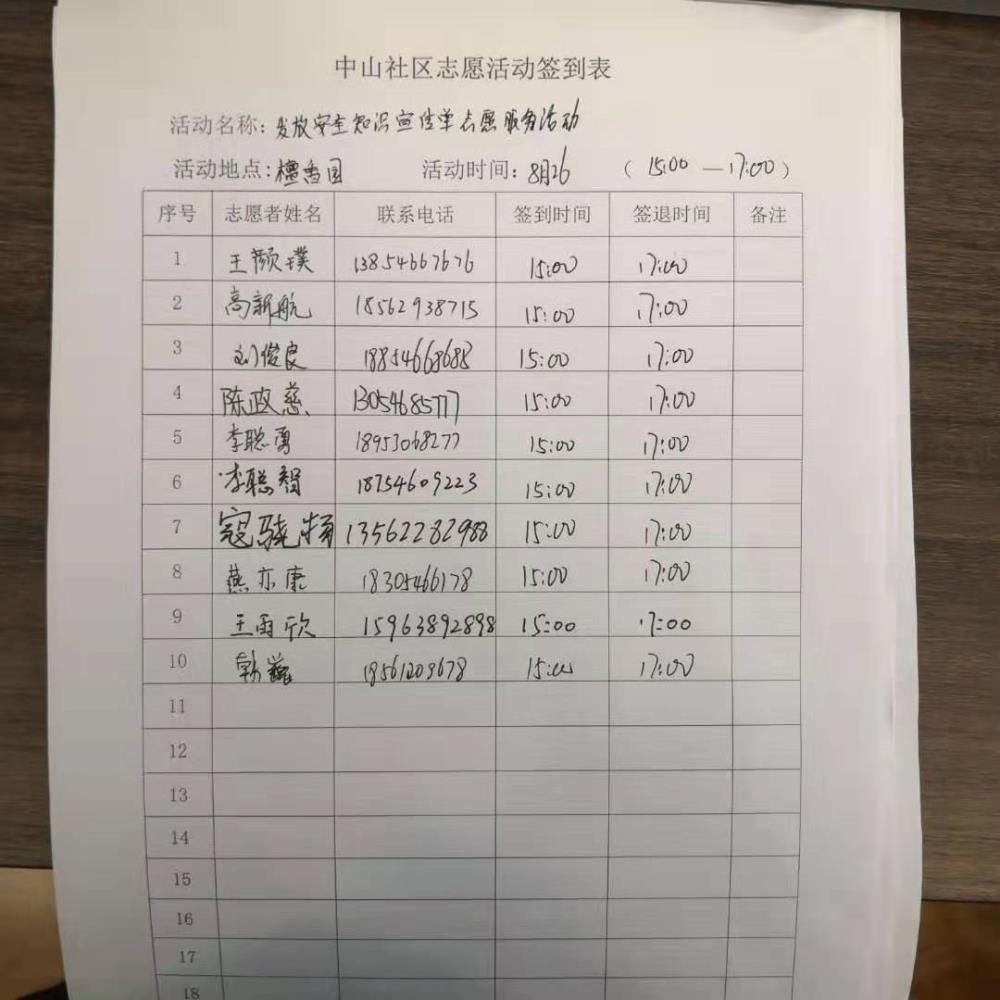 中山社区志愿活动签到表
活动名称:发放安全知识宣传单志愿服务活动
活动地点:檀香园 活动时间:8月26 (15:00—17:00)
序号 志愿者姓名 联系电话 签到时间 签退时间 备注
1 王颢璞 13854667676 15:00 17:00
2 高新航 18562938715 15:00 17:00
3 刘俊良 18854668688 15:00 17:00
4 陈政慈 13054685777 15:00 17:00
5 李聪勇 18953068277 15:00 17:00
6 李聪智 18754609223 15:00 17:00
7 寇骁扬 13562282988 15:00 17:00
8 燕亦康 18305466178 15:00 17:00
9 王雨欣 15963892898 15:00 17:00
10 18561209678 15:00 17:00
11
12
13
14
15
16
17
18